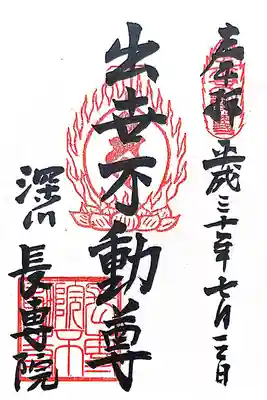 奉拝 平成三十年七月三日
出世不動尊
深川
長専院